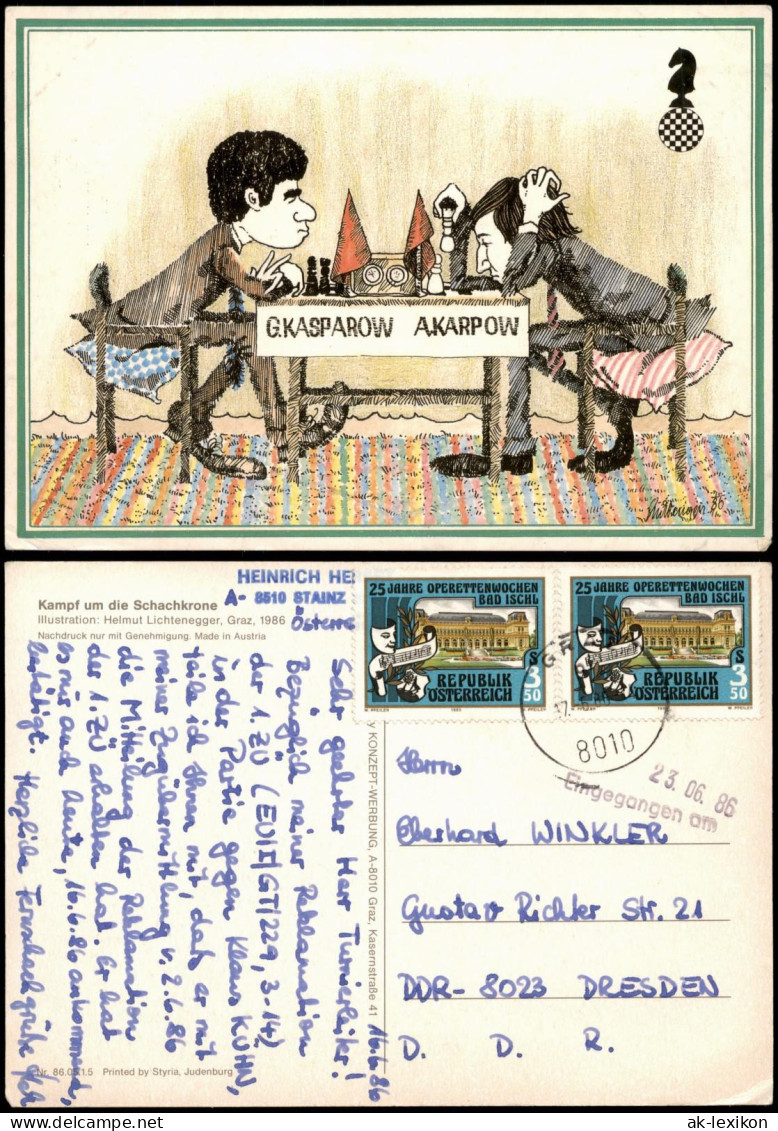 G.KASPAROW A.KARPOW
86
Kampf um die Schachkrone
Illustration: Helmut Lichtenegger, Graz, 1986
Nachdruck nur mit Genehmigung. Made in Austria
HEINRICH
A- 8510 STAINZ
Österre
25 JAHRE OPERETTENWOCHEN
BAD ISCHL
REPUBLIK
ÖSTERREICH
S
3
50
25 JAHRE OPERETTENWOCHEN
BAD ISCHL
REPUBLIK
ÖSTERREICH
S
3
50
8010
23.06.86
Eingegangen am
16.6.86
Sehr geehrter Herr Turnierleiter!
Bezüglich meiner Reklamation
der 1. ZÜ (EU/II/GT/229, 3-14)
in der Partie gegen Klaus KÜHN,
teile ich Ihnen mit, daß er mit
meiner Zugübermittlung v. 2.6.86
die Mitteilung der Reklamation
der 1. ZÜ erhalten hat. Er hat
es mir auch heute, 16.6.86 ankommend,
bestätigt. Herzliche Fernschachgrüße
KONZEPT-WERBUNG, A-8010 Graz, Kasernstraße 41
Herrn
Eberhard WINKLER
Gustav Richter Str. 21
DDR- 8023 DRESDEN
D. D. R.
Nr. 86.05.1.5 Printed by Styria, Judenburg
ak-lexikon